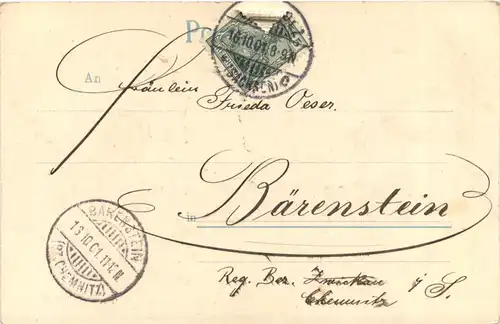 An
Fräulein Frieda Oeser.
in Bärenstein
Reg. Bez. Zwickau i/S.
Chemnitz
BÄRENSTEIN
13 10 01. 11-12.N.
(BZ. CHEMNITZ)
16.10.01. 8-9N
(SACHSEN)